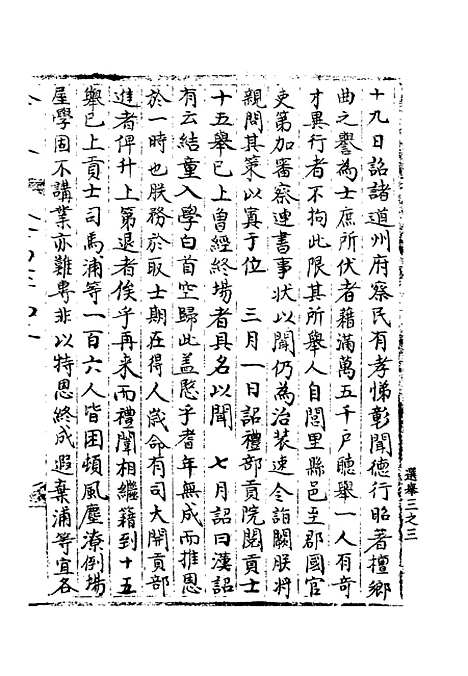 十九日詔諸道州府察民有孝悌彰聞德行昭著檀鄉
曲之譽為士庶所伏者籍滿萬五千戶聽舉一人有奇
才異行者不拘此限其所舉人自閭里縣邑至郡國官
吏第加審察連書事狀以聞仍為治裝速令詣闕朕將
親問其策以寘于位　三月一日詔禮部貢院閱貢士
十五舉已上曾經終場者具名以聞　七月詔曰漢詔
有云結童入學白首空歸此蓋愍乎耆年無成而推恩
於一時也朕務於取士期在得人歲命有司大開貢部
進者俾升上第退者俟乎再来而禮闈相繼籍到十五
舉已上貢士司馬浦等一百六人皆困頓風塵潦倒場
屋學固不講業亦難專非以特恩終成遐棄浦等宜各
選舉三之三